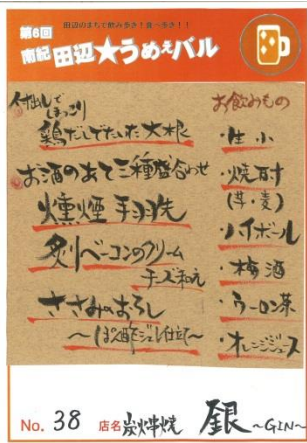 第6回
田辺のまちで飲み歩き!食べ歩き!!
南紀田辺★うめぇバル
付出しでほっこり
鶏だしでたいた大根
お酒のあて三種盛合わせ
燻煙手羽先
炙りベーコンのクリーム
チーズ和え
ささみのおろし
～ぽん酢ジュレ仕立て～
お飲みもの
・生小
・焼酎
(芋・麦)
・ハイボール
・梅酒
・ウーロン茶
・オレンジジュース
No. 38 店名 炭火串焼 銀 ~GIN~